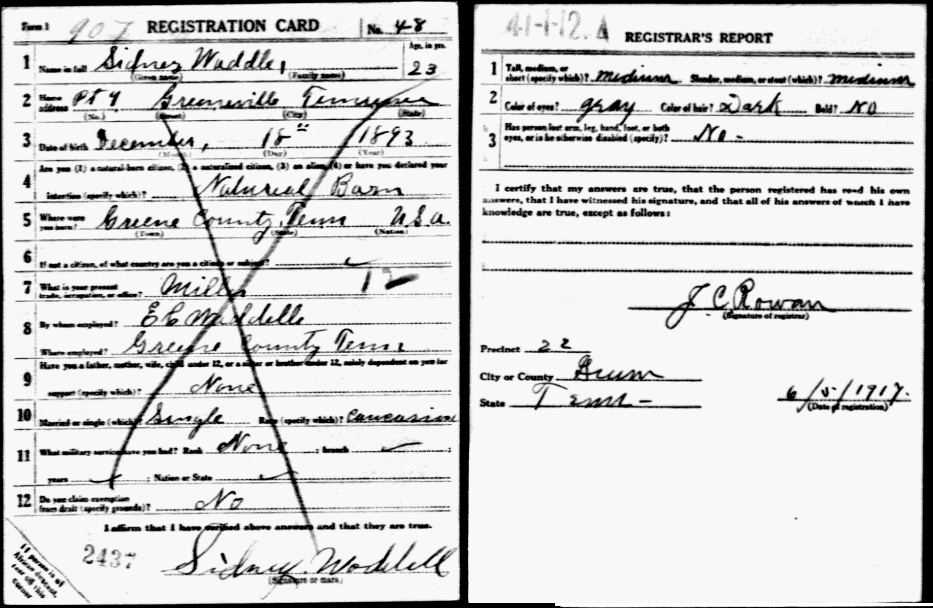 Form 1 907 REGISTRATION CARD No. 48
1 Name in full Sidney Waddle, Age, in yrs. 23
(Given name) (Family name)
2 Home address Rt 4 Greeneville Tennessee
(No.) (Street) (City) (State)
3 Date of birth December, 18th 1893
(Month) (Day) (Year)
4 Are you (1) a natural-born citizen, (2) a naturalized citizen, (3) an alien, (4) or have you declared your
intention (specify which)? Natural Born
5 Where were you born? Greene County, Tenn U.S.a.
(Town) (State) (Nation)
6 If not a citizen, of what country are you a citizen or subject?
7 What is your present trade, occupation, or office? Miller 12
8 By whom employed? E C Waddelle
Where employed? Greene County Tenn
9 Have you a father, mother, wife, child under 12, or a sister or brother under 12, solely dependent on you for
support (specify which)? None
10 Married or single (which)? Single Race (specify which)? Caucasian
11 What military service have you had? Rank None ; branch
years ; Nation or State
12 Do you claim exemption from draft (specify grounds)? No
I affirm that I have verified above answers and that they are true.
2437 Sidney Waddell
(Signature or mark)
If person is of African descent, tear off this corner
41-1-12. A REGISTRAR'S REPORT
1 Tall, medium, or short (specify which)? medium Slender, medium, or stout (which)? medium
2 Color of eyes? gray Color of hair? Dark Bald? NO
3 Has person lost arm, leg, hand, foot, or both eyes, or is he otherwise disabled (specify)? No -
I certify that my answers are true, that the person registered has read his own
answers, that I have witnessed his signature, and that all of his answers of which I have
knowledge are true, except as follows:
J. C. Rowan
(Signature of registrar)
Precinct 22
City or County
State Tenn - 6/5/1917.
(Date of registration)